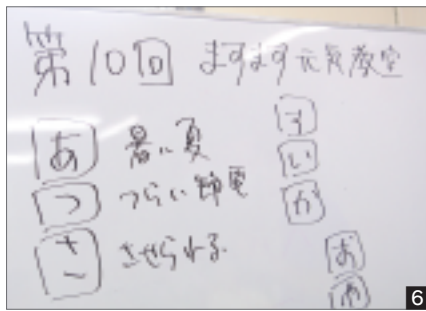 第10回 ますます元気教室
あ 暑い夏
つ つらい節電
さ させられる
す
い
か
お
6